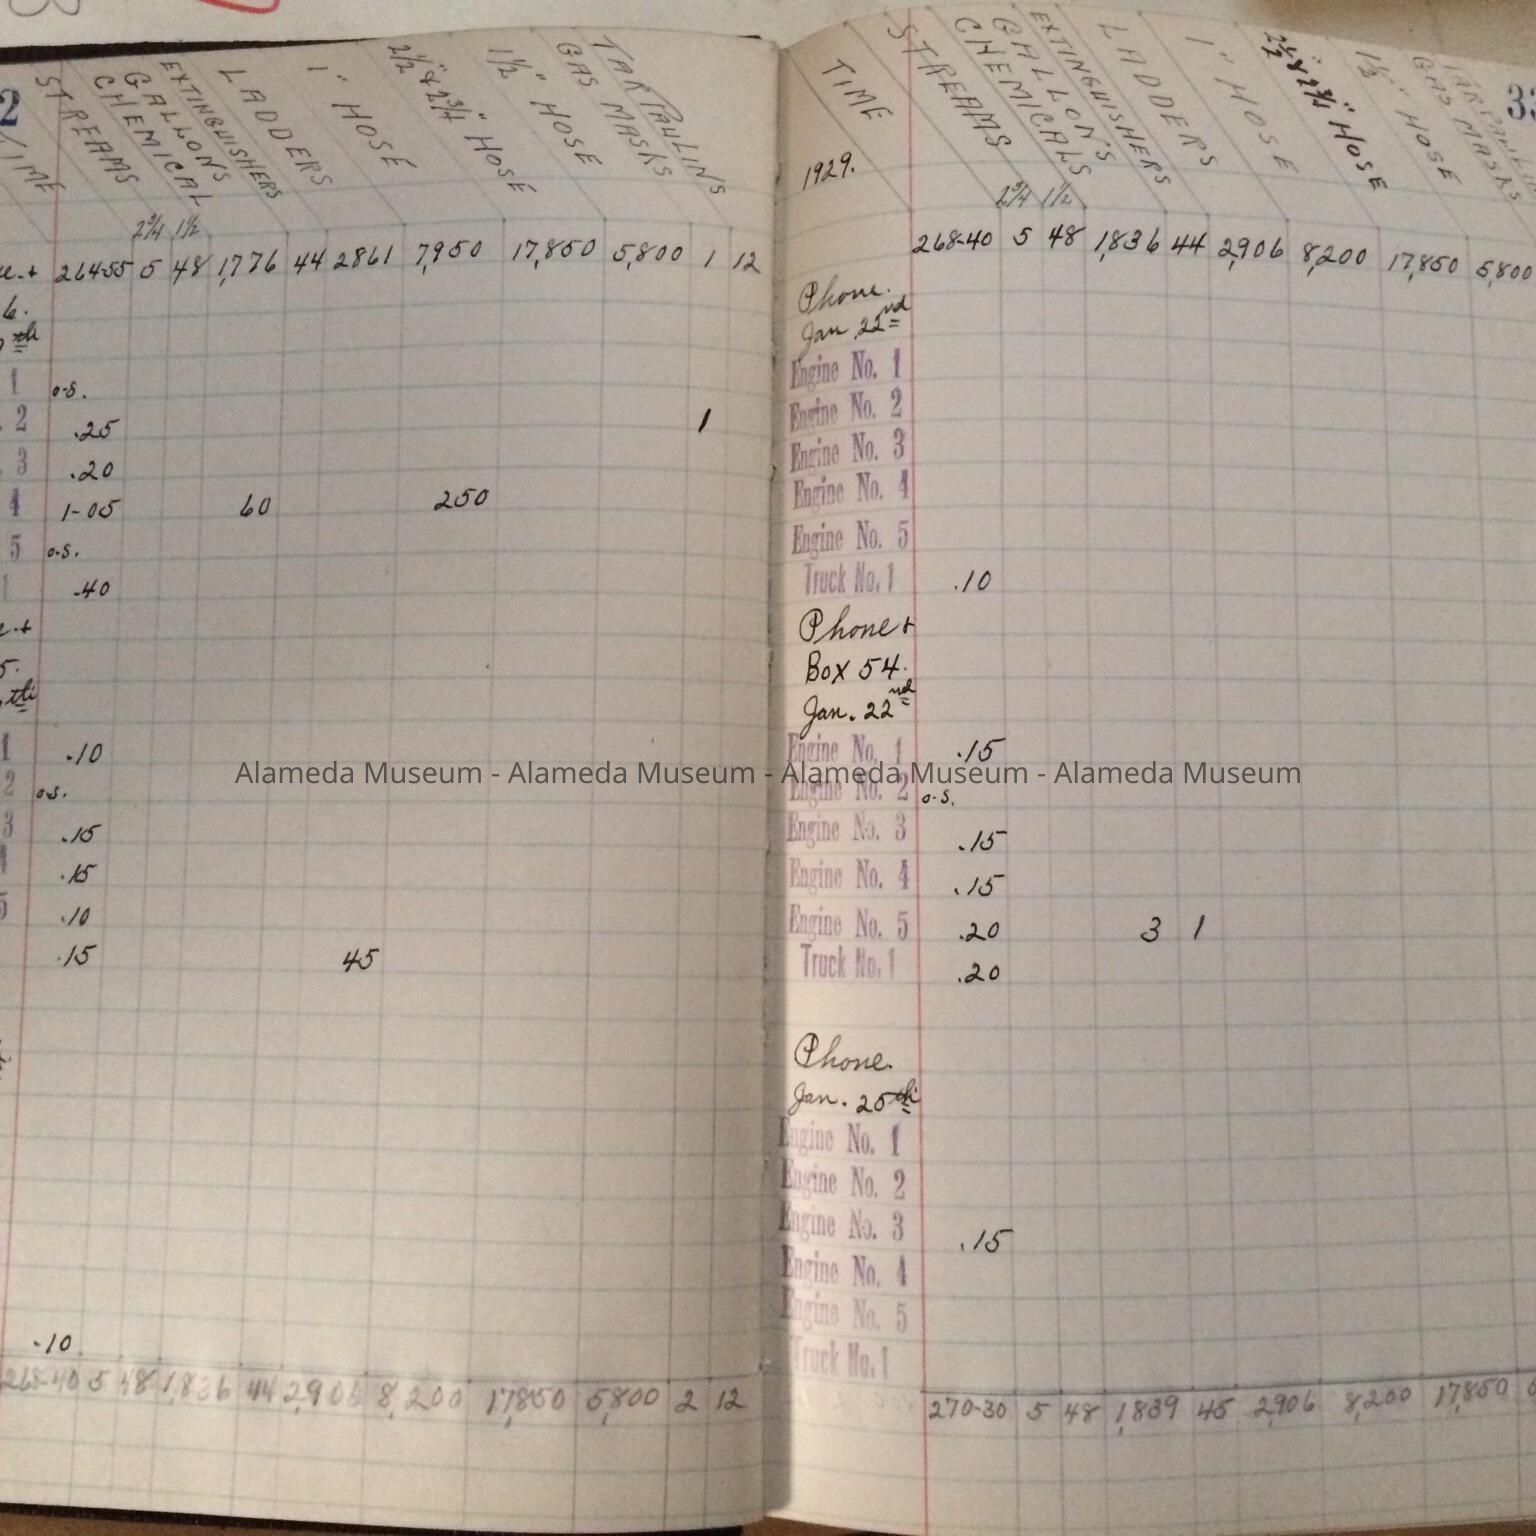 2
TIME
STREAMS
CHEMICAL
GALLON'S
EXTINGUISHERS
LADDERS
1" HOSE
2½" & 2¾" HOSE
1½" HOSE
GAS MASKS
TARPAULIN'S
2¾ 1½
264-55 5 48 1,776 44 2861 7,950 17,850 5,800 1 12
6.
th
1 o-s.
2 .25 1
3 .20
4 1-05 60 250
5 o.s.
1 .40
5.
th
1 .10
2 o.s.
3 .15
4 .15
5 .10
.15 45
.10
268-40 5 48 1,836 44 2,906 8,200 17,850 5,800 2 12
33
TIME
STREAMS
CHEMICALS
GALLON'S
EXTINGUISHERS
LADDERS
1" HOSE
2½" & 2¾" HOSE
1½" HOSE
GAS MASKS
1929.
2¾ 1½
268-40 5 48 1,836 44 2,906 8,200 17,850 5,800
Phone.
Jan 22nd
Engine No. 1
Engine No. 2
Engine No. 3
Engine No. 4
Engine No. 5
Truck No. 1 .10
Phone +
Box 54.
Jan. 22nd
Engine No. 1 .15
Alameda Museum - Alameda Museum - Alameda Museum - Alameda Museum
Engine No. 2 o-s.
Engine No. 3 .15
Engine No. 4 .15
Engine No. 5 .20 3 1
Truck No. 1 .20
Phone.
Jan. 25th
Engine No. 1
Engine No. 2
Engine No. 3 .15
Engine No. 4
Engine No. 5
Truck No. 1
270-30 5 48 1,839 45 2,906 8,200 17,850